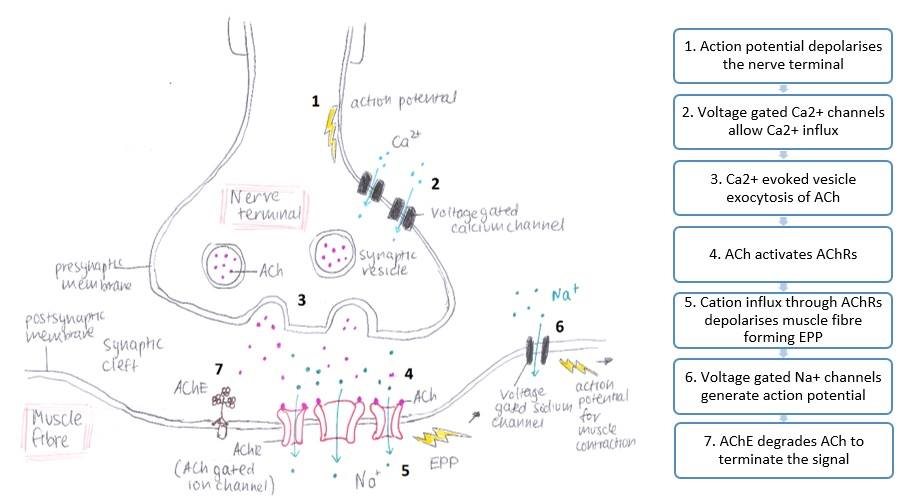 1
action potential
Ca2+
2
Nerve
terminal
Voltage gated
calcium channel
presynaptic
membrane
ACh
synaptic
vesicle
3
postsynaptic
membrane
Synaptic
cleft
Na+
6
7
AChE
4
ACh
Voltage
gated sodium
channel
action
potential
for
muscle
contraction
Muscle
fibre
AChR
(ACh gated
ion channel)
Na+
5
EPP
1. Action potential depolarises
the nerve terminal
2. Voltage gated Ca2+ channels
allow Ca2+ influx
3. Ca2+ evoked vesicle
exocytosis of ACh
4. ACh activates AChRs
5. Cation influx through AChRs
depolarises muscle fibre
forming EPP
6. Voltage gated Na+ channels
generate action potential
7. AChE degrades ACh to
terminate the signal